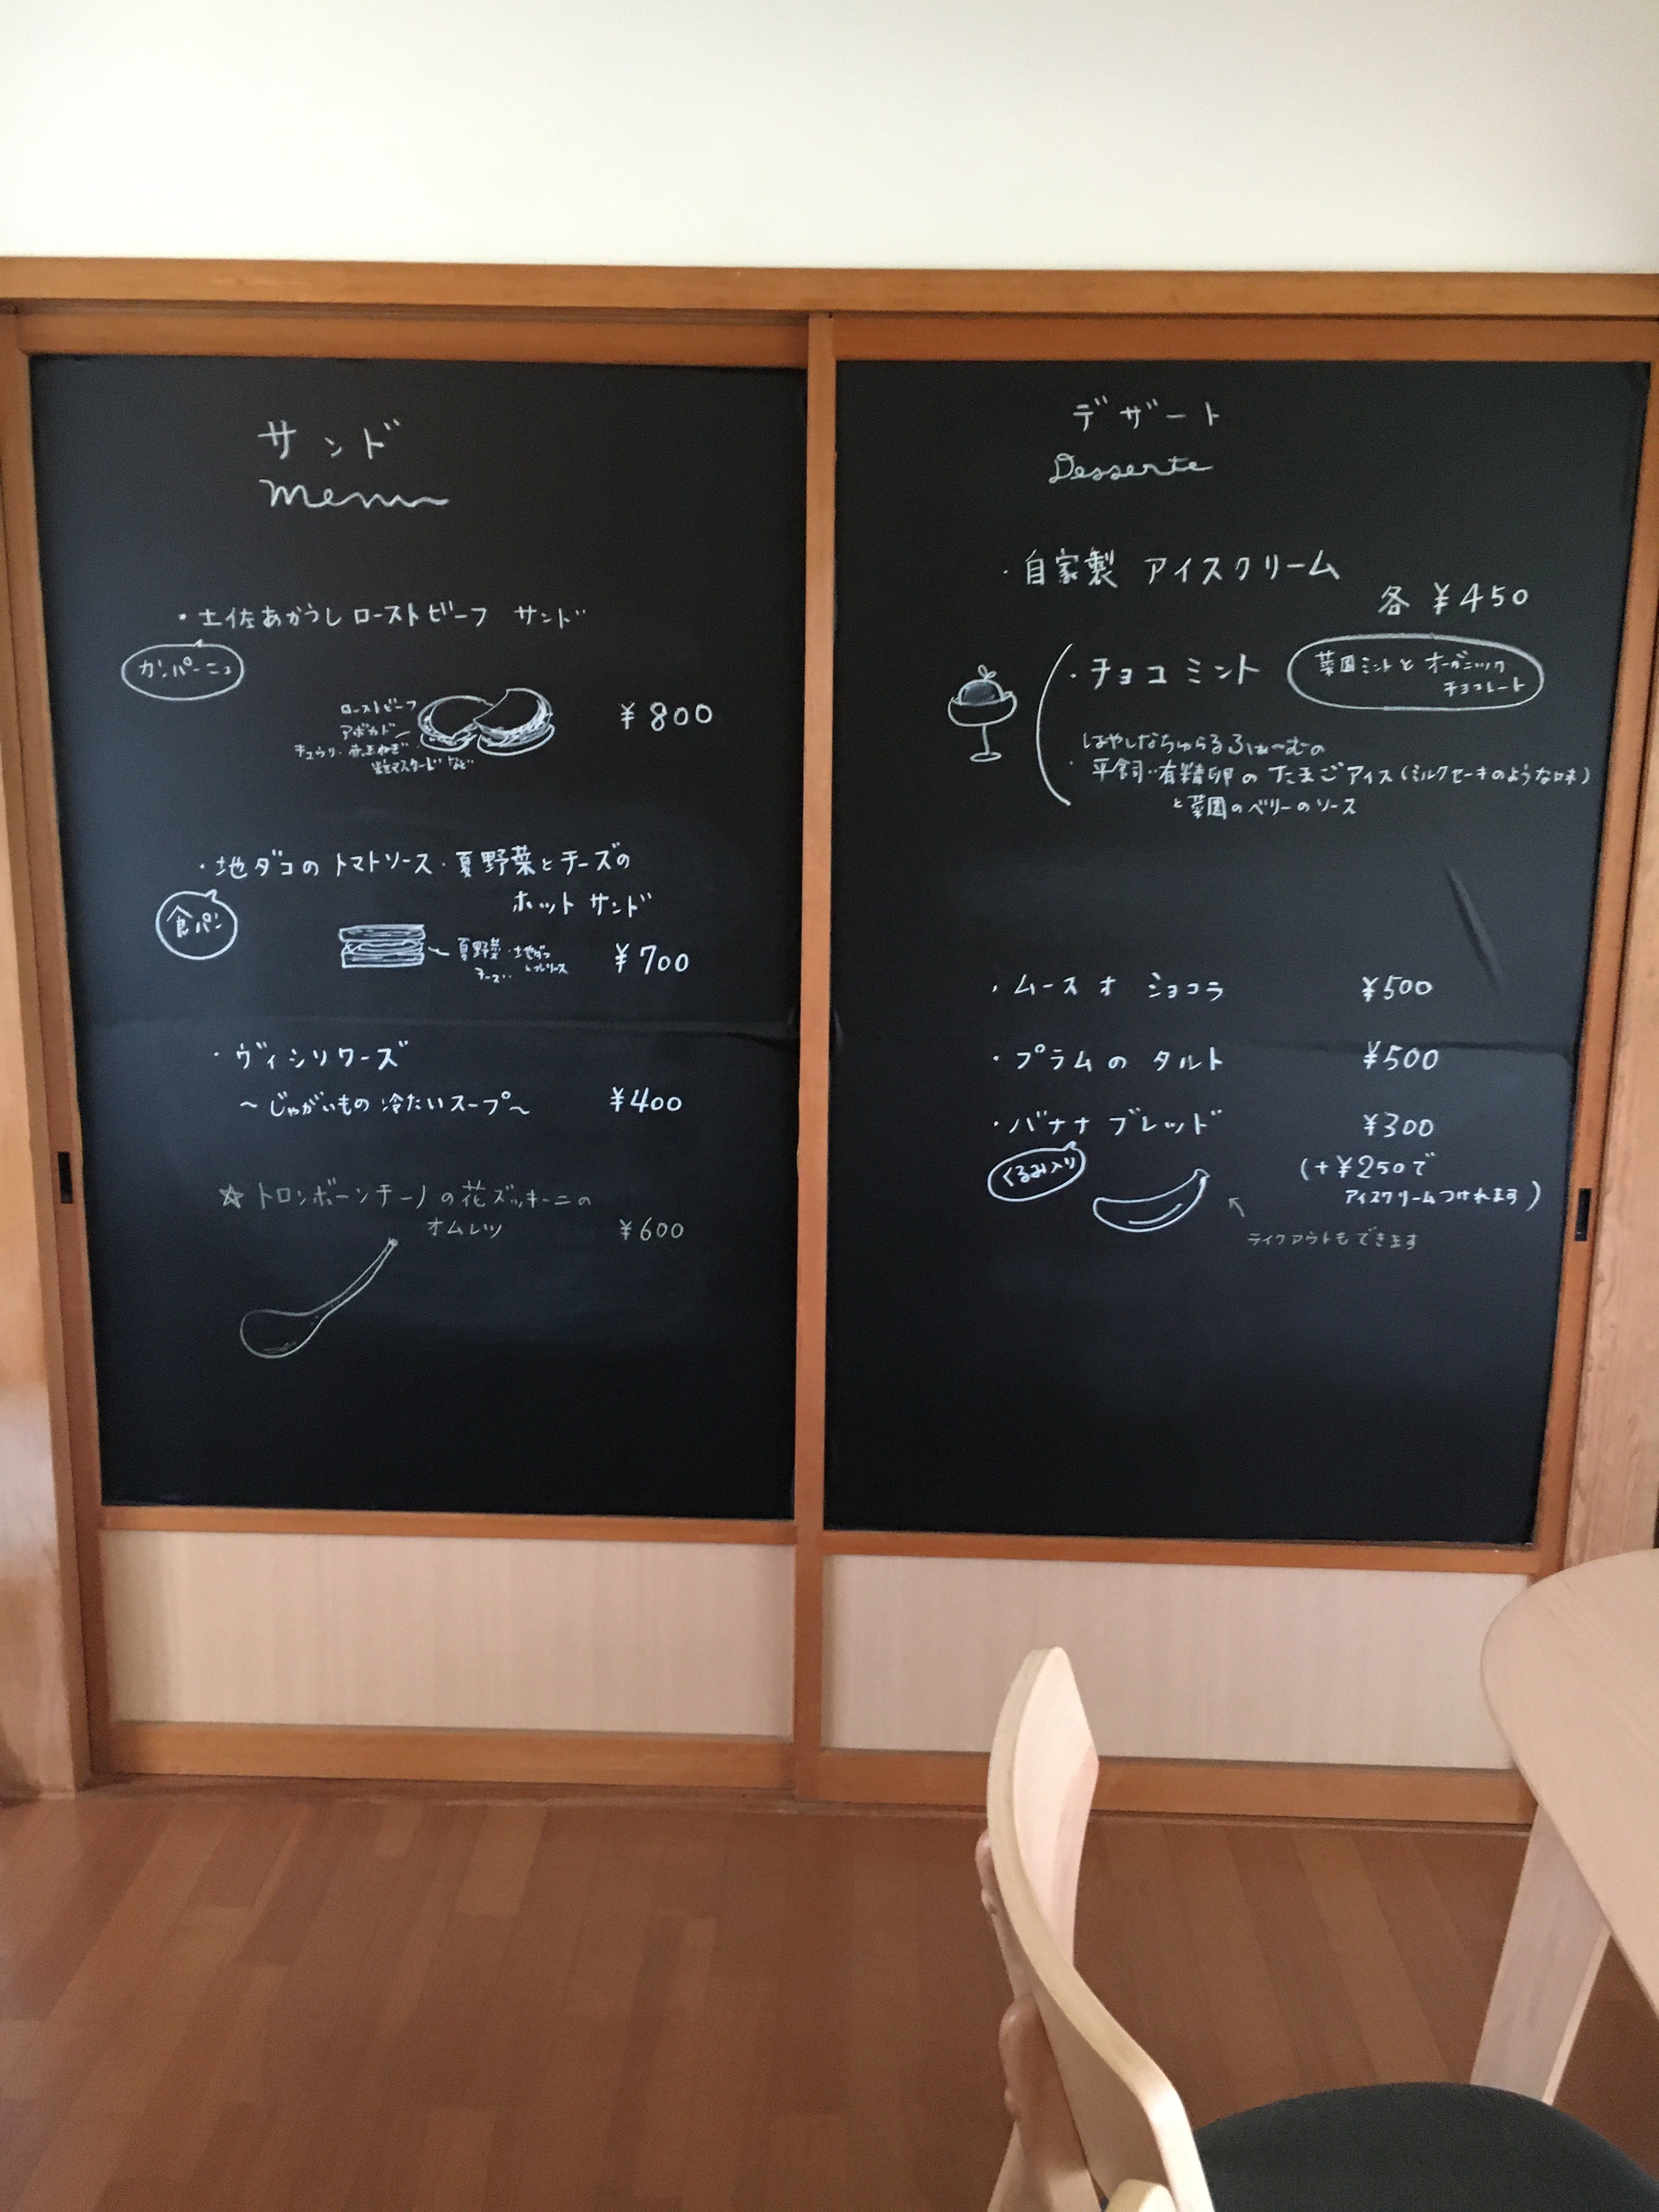 サンド
menu
・土佐あかうしローストビーフ サンド
カンパーニュ
ローストビーフ
アボカド
キュウリ・赤玉ねぎ
粒マスタードなど
¥800
・地ダコのトマトソース・夏野菜とチーズの
ホットサンド
食パン
夏野菜・地ダコ
チーズ・トマトソース
¥700
・ヴィシソワーズ
〜じゃがいもの冷たいスープ〜 ¥400
☆トロンボーンチーノの花ズッキーニの
オムレツ ¥600
デザート
Desserte
・自家製 アイスクリーム
各 ¥450
・チョコミント
菜園ミントとオーガニック
チョコレート
はやしなちゅらるふぁーむの
・平飼い有精卵のたまごアイス(ミルクセーキのような味)
と菜園のベリーのソース
・ムースオショコラ ¥500
・プラムのタルト ¥500
・バナナブレッド ¥300
くるみ入り
(+¥250で
アイスクリームつけれます)
テイクアウトもできます